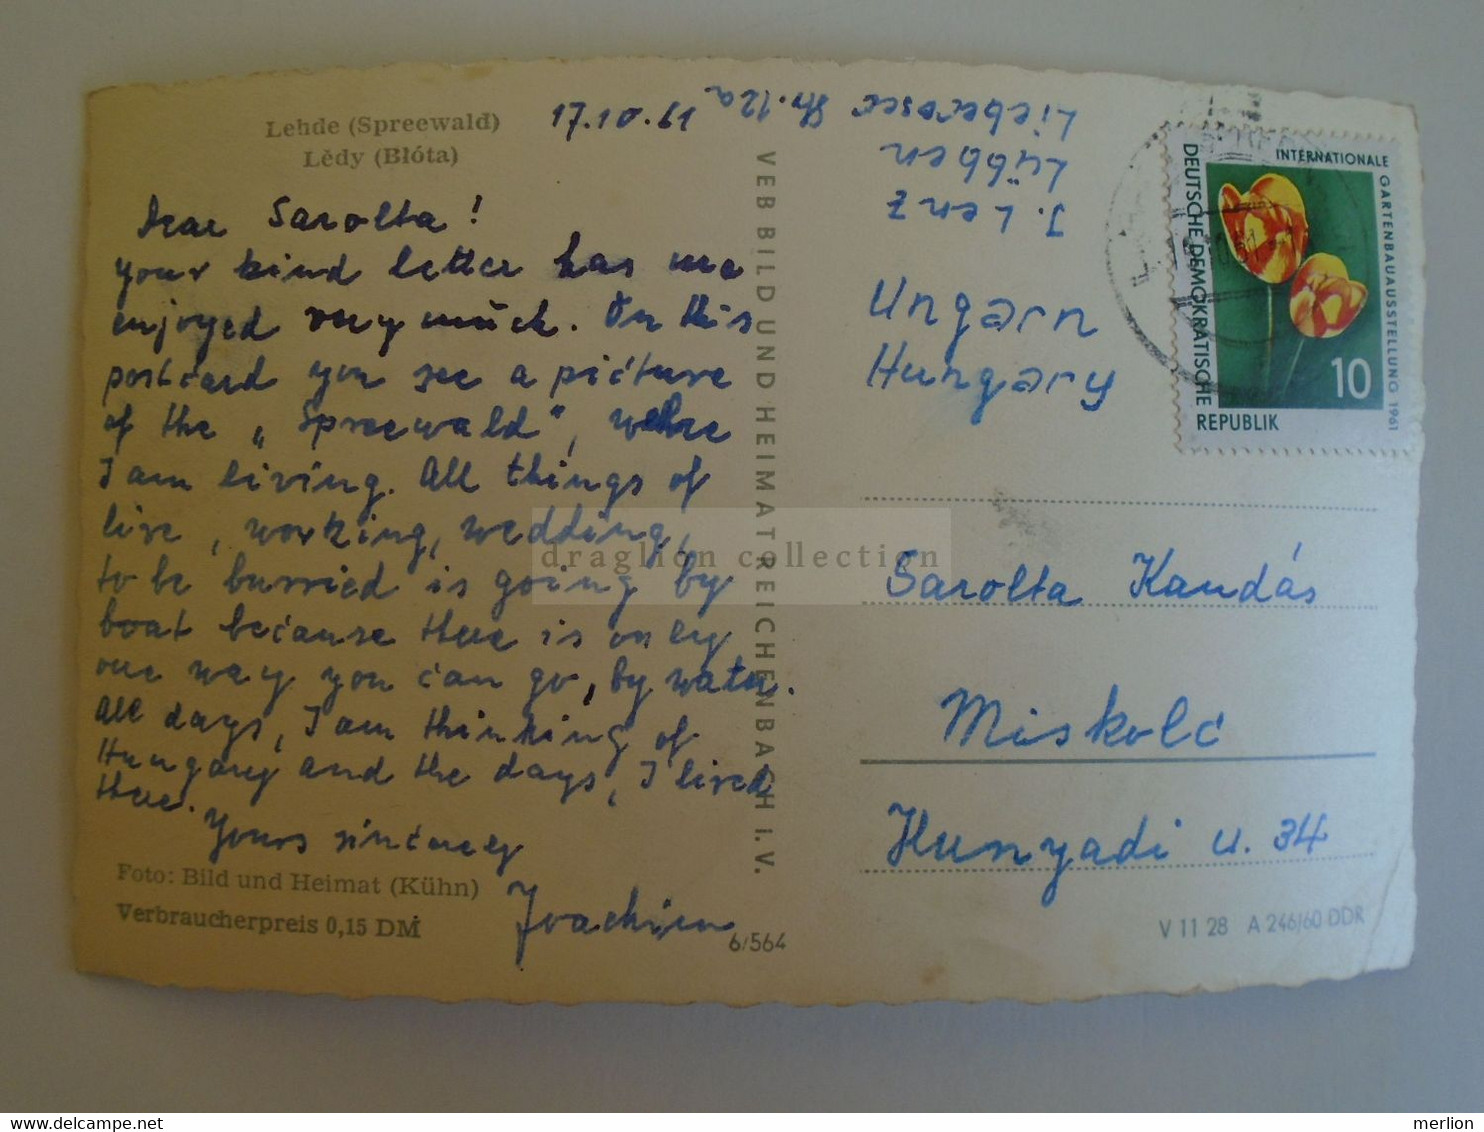 Lehde (Spreewald)
Lědy (Błóta)
17.10.61
Dear Sarolta!
your kind letter has me
enjoyed very much. On this
postcard you see a picture
of the „Spreewald“, where
I am living. All things of
live, working, wedding,
to be burried is going by
boat because there is only
one way you can go, by water.
All days, I am thinking of
Hungary and the days, I lived
there.
Yours sincerely
Joachim
Foto: Bild und Heimat (Kühn)
Verbraucherpreis 0,15 DM
6/564
VEB BILD UND HEIMAT REICHENBACH I. V.
J. Lenz
Lübben
Lieberoser Str. 12a
Ungarn
Hungary
Sarolta Kandás
Miskolc
Hunyadi u. 34
V 11 28 A 246/60 DDR
INTERNATIONALE
GARTENBAUAUSSTELLUNG 1961
DEUTSCHE DEMOKRATISCHE
REPUBLIK
10
draglion collection
merlion
delcampe.net